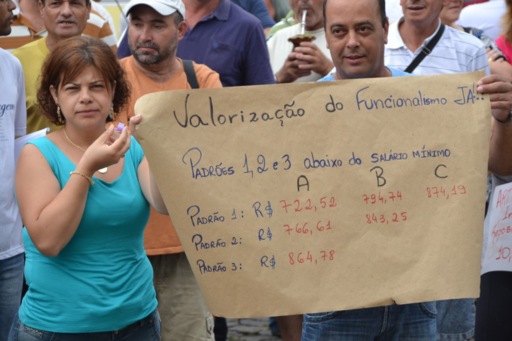 Valorização do Funcionalismo JÁ!!
Padrões 1, 2 e 3 abaixo do salário mínimo
A B C
Padrão 1: R$ 722,52 794,74 874,19
Padrão 2: R$ 766,61 843,25
Padrão 3: R$ 864,78